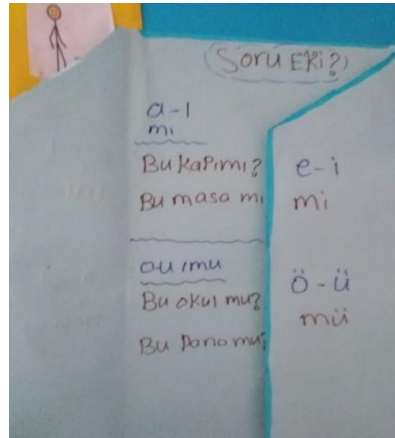 Soru EKi?
a-ı
mı
Bu Kapı mı?
Bu masa mı
o u mu
Bu okul mu?
Bu Pano mu?
e-i
mi
ö-ü
mü